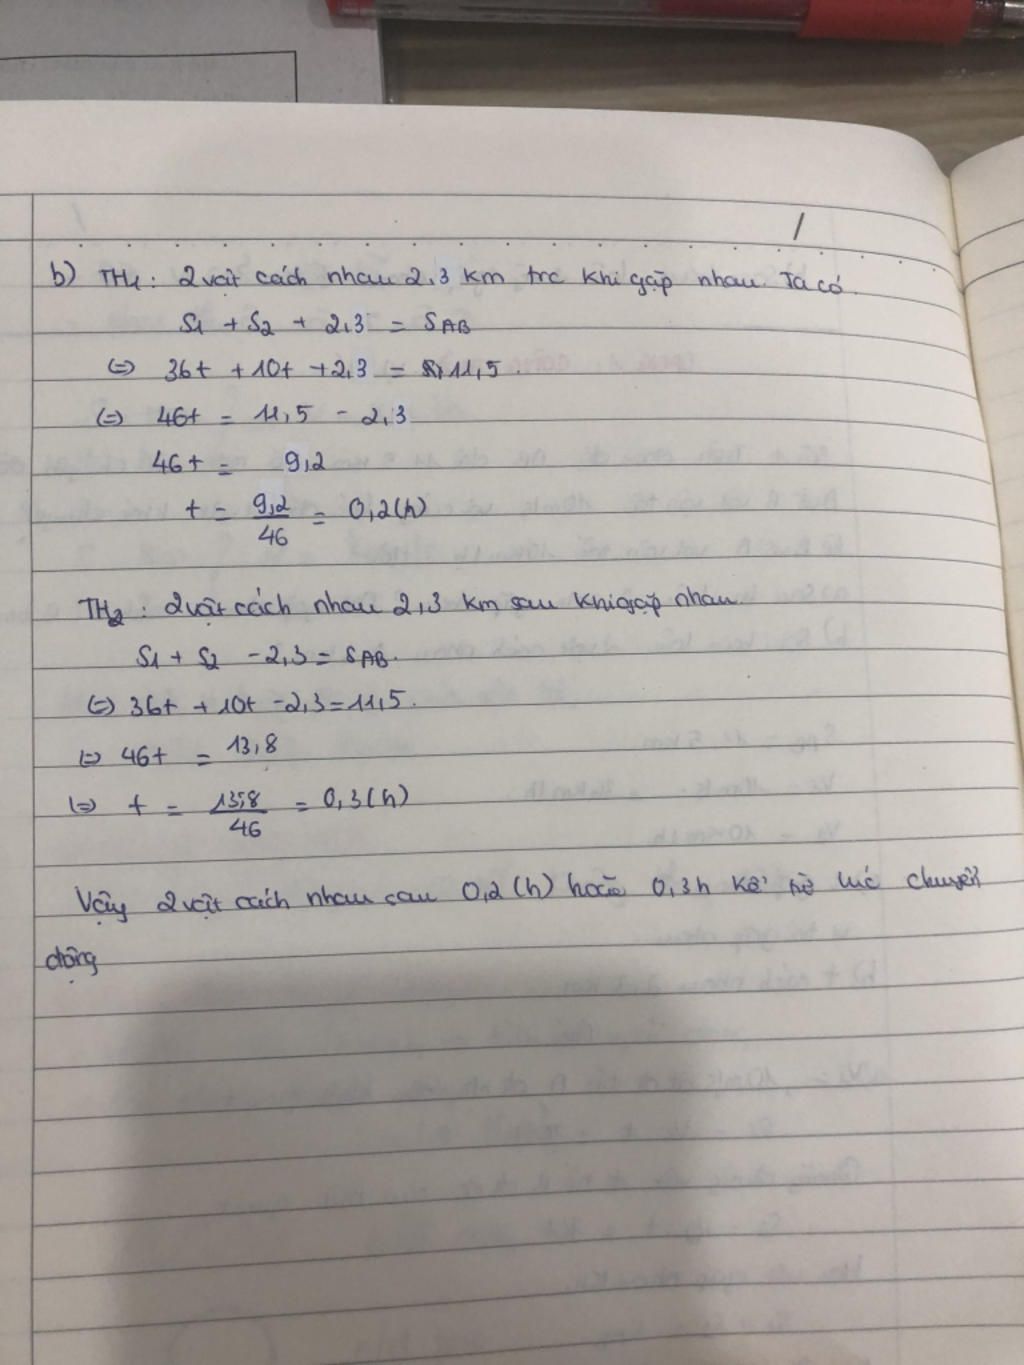 b) TH1: 2 vật cách nhau 2,3 km trc khi gặp nhau. Ta có
S1 + S2 + 2,3 = SAB
(=) 36t + 10t + 2,3 = 11,5.
(=) 46t = 11,5 - 2,3
46t = 9,2
t = 9,2/46 = 0,2(h)
TH2: 2 vật cách nhau 2,3 km sau khi gặp nhau
S1 + S2 - 2,3 = SAB.
(=) 36t + 10t - 2,3 = 11,5.
(=) 46t = 13,8
(=) t = 13,8/46 = 0,3(h)
Vậy 2 vật cách nhau sau 0,2(h) hoặc 0,3h kể từ lúc chuyển
động